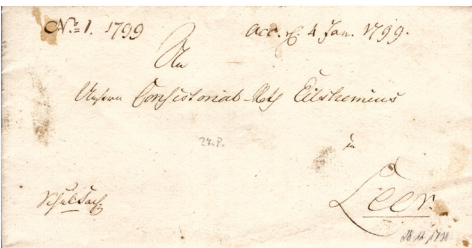 No 1. 1799 acc. d. 4 Jan. 1799.
An
Unsern Consistorial-Rath Eilshemius
in
Leer.
Schulsach